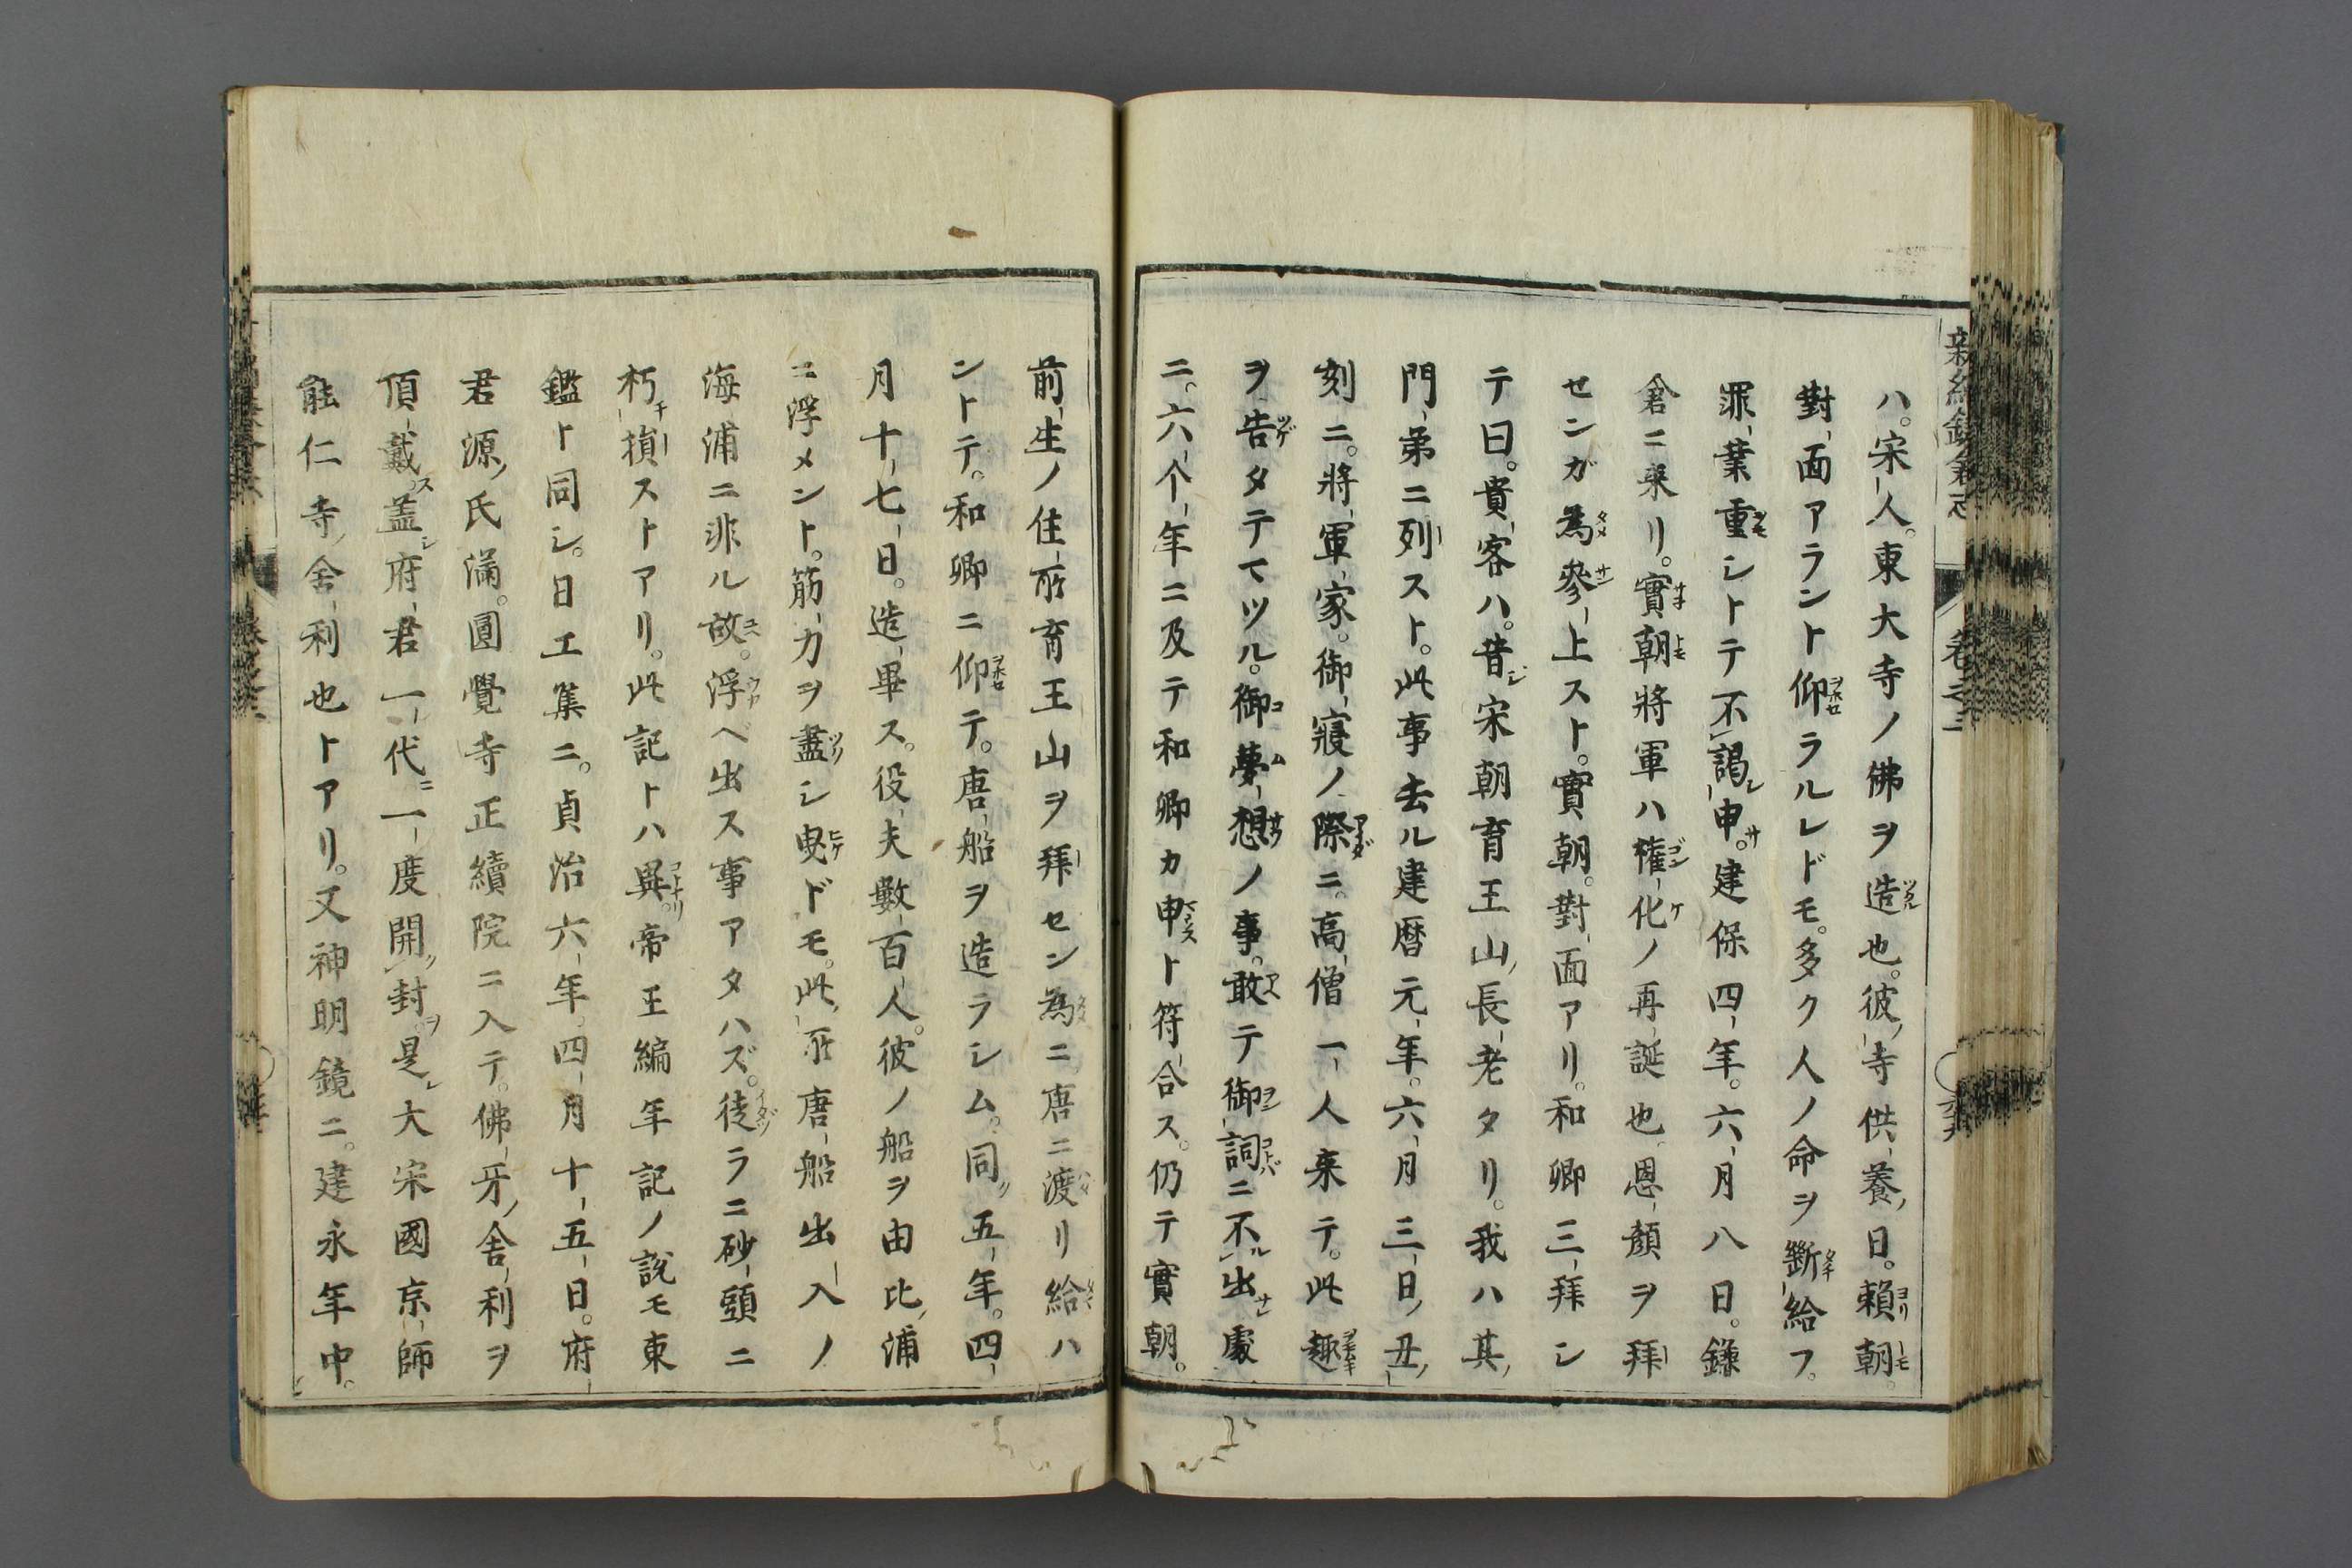 ハ。宋人。東大寺ノ佛ヲ造也。彼寺供養ノ日。頼朝。
對面アラント仰ラルレドモ。多ク人ノ命ヲ斷給フ。
罪業重シトテ不謁申。建保四年。六月八日。鎌
倉ニ来リ。實朝將軍ハ權化ノ再誕也。恩顏ヲ拜
センガ為參上スト。實朝。對面アリ。和卿三拜シ
テ曰。貴客ハ。昔シ宋朝育王山ノ長老タリ。我ハ其ノ
門弟ニ列スト。此事去ル建暦元年。六月三日ノ丑ノ
刻ニ。將軍家。御寢ノ際ニ。高僧一人来テ。此趣
ヲ告タテマツル。御夢想ノ事。敢テ御詞ニ不出處
ニ。六个年ニ及テ和卿カ申ト符合ス。仍テ實朝。
前生ノ住所育王山ヲ拜セン為ニ唐ニ渡リ給ハ
ントテ。和卿ニ仰テ。唐船ヲ造ラシム。同五年。四
月十七日。造畢ス。役夫數百人。彼ノ船ヲ由比ノ浦
ニ浮メント。筋力ヲ盡シ曳ドモ。此所唐船出入ノ
海浦ニ非ル故。浮ベ出ス事アタハズ。徒ラニ砂頭ニ
朽損ストアリ。此記トハ異。帝王編年記ノ說モ東
鑑ト同シ。日工集ニ。貞治六年。四月十五日。府
君源ノ氏滿。圓覺寺正續院ニ入テ。佛牙ノ舍利ヲ
頂戴ス。盖シ府君一代ニ一度開ク封ヲ。是レ大宋國京師
能仁寺ノ舍利也トアリ。又神明鏡ニ。建永年中。
卷之三